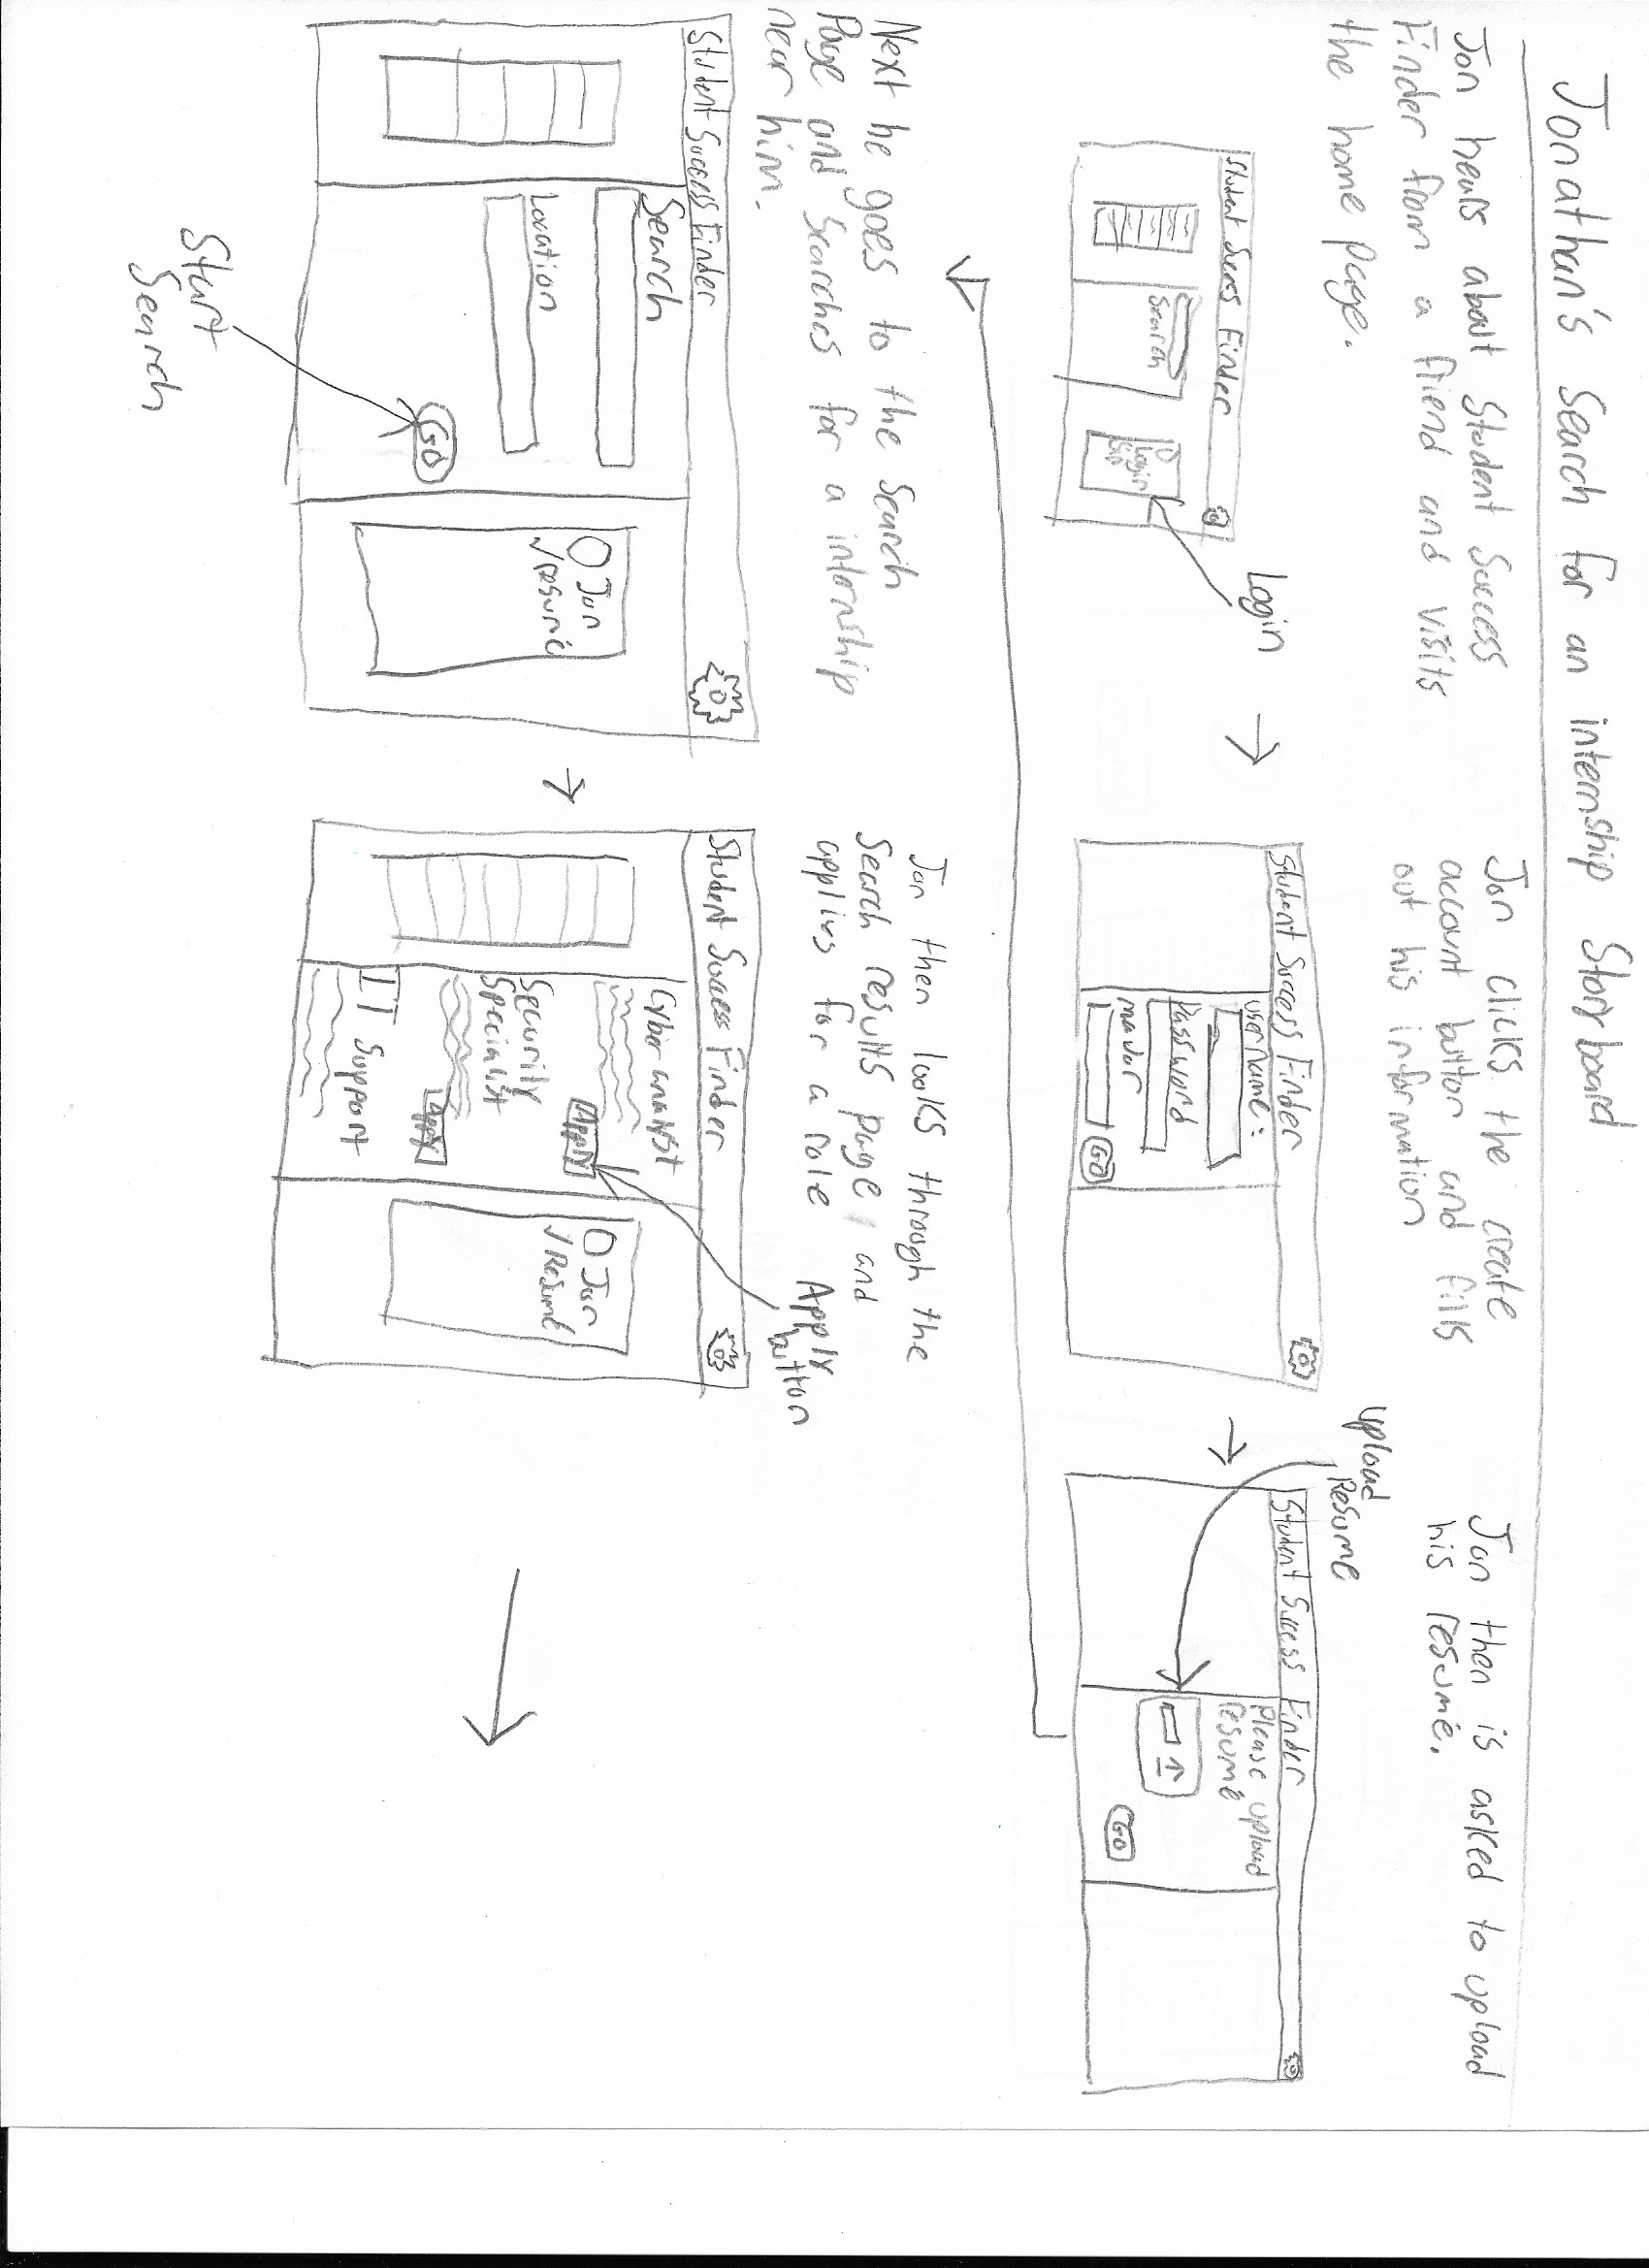 Jonathan's Search for an internship Story board
Jon hears about Student Success
Finder from a friend and visits
the home page.
Student Sucess Finder
Search
Login
Login
Jon clicks the create
account button and fills
out his information
Student Success Finder
username:
Password
major
GO
Jon then is asked to upload
his resumé.
upload
Resume
Student Success Finder
please upload
resume
GO
Next he goes to the Search
Page and Searches for a internship
near him.
Student Success Finder
Search
Location
GO
Jon
✓resumé
Start
Search
Jon then looks through the
Search results page and
applies for a role
Apply
button
Student Success Finder
Cyber analyst
Apply
Security
Specialist
apply
IT Support
Jon
✓Resume